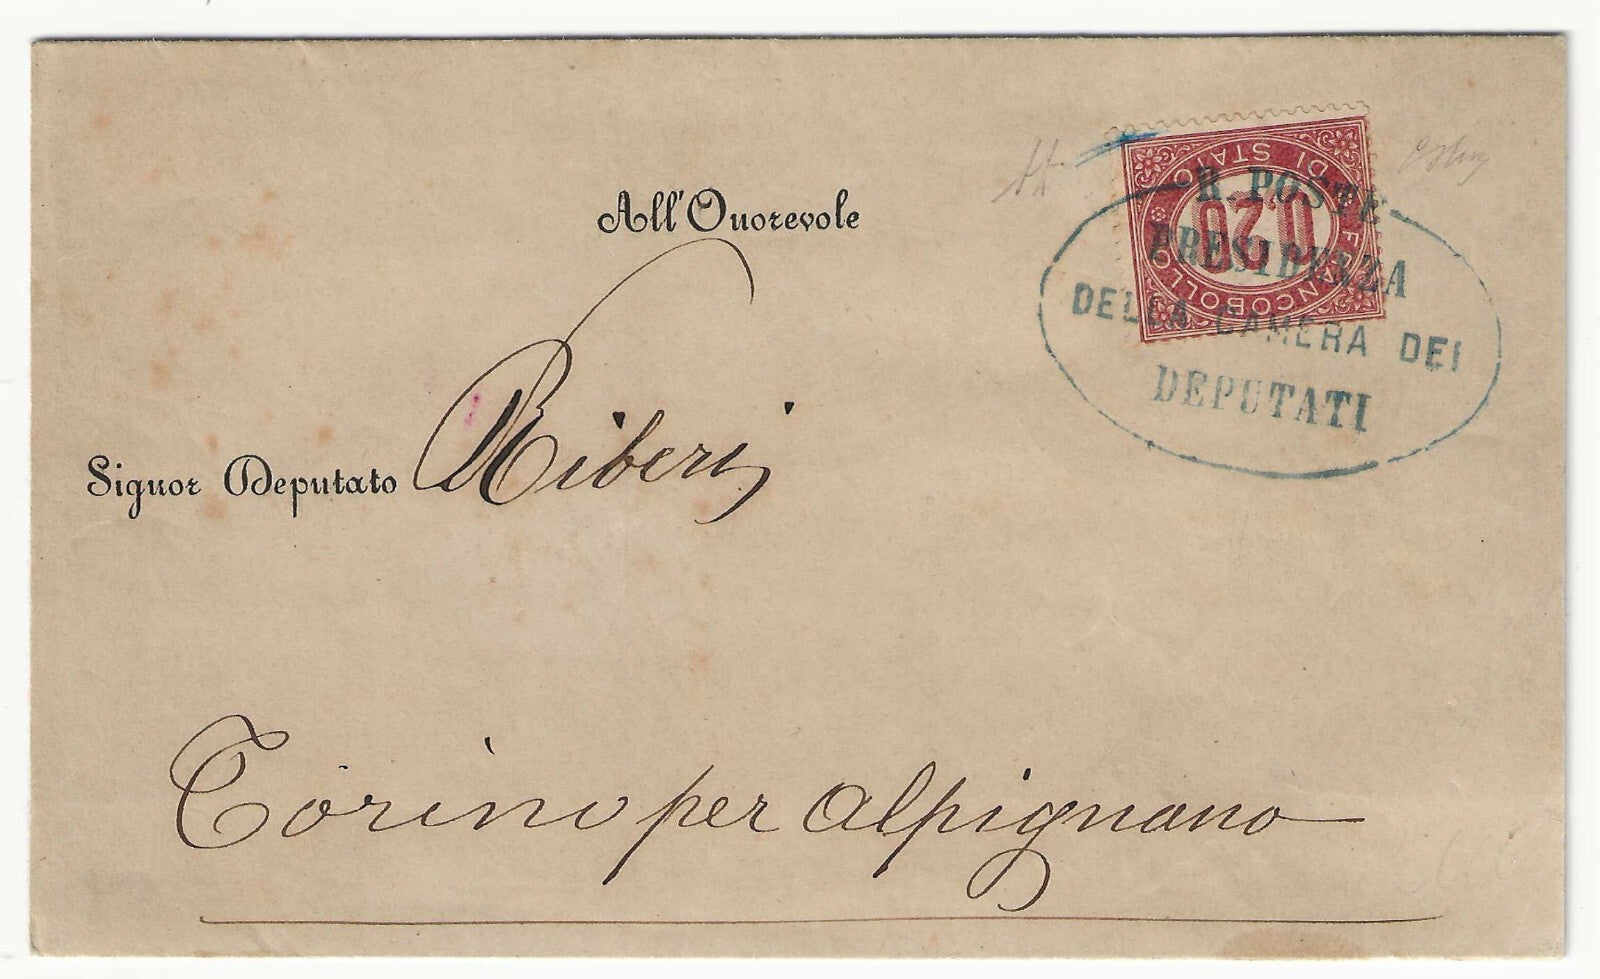 All'Onorevole
Signor Deputato Riberi
Torino per Alpignano
FRANCOBOLLO DI STATO
0,20
R. POSTE
PRESIDENZA
DELLA CAMERA DEI
DEPUTATI